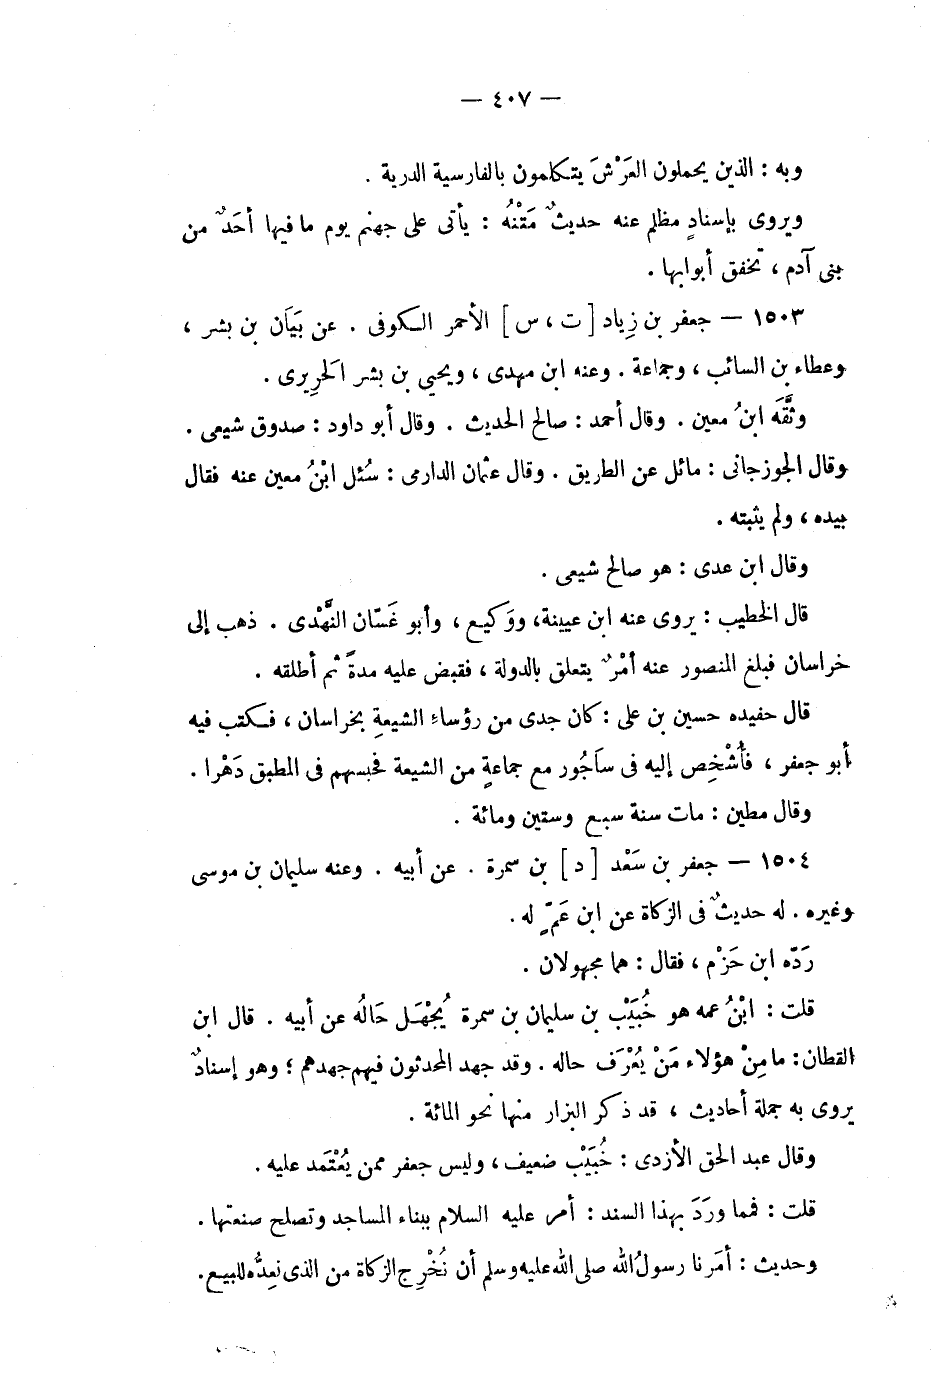 — ٤٠٧ —
وبه : الذين يحملون العَرْشَ يتكلمون بالفارسية الدرية .
ويروى بإسنادٍ مظلم عنه حديثٌ مَتْنُهُ : يأتى على جهنم يوم ما فيها أحَدٌ من
بنى آدم ، تخفق أبوابها .
١٥٠٣ — جعفر بن زِياد [ ت ، س ] الأحمر الكوفى . عن بَيَان بن بشر ،
وعطاء بن السائب ، وجماعة . وعنه ابن مهدى ، ويحيى بن بشر الحَرِيرى .
وثَّقَه ابنُ معين . وقال أحمد : صالح الحديث . وقال أبو داود : صدوق شيعى .
وقال الجوزجانى : مائل عن الطريق . وقال عثمان الدارمى : سُئل ابْنُ معين عنه فقال
بيده ، ولم يثبته .
وقال ابن عدى : هو صالح شيعى .
قال الخطيب : يروى عنه ابن عيينة، ووَكيع ، وأبو غَسّان النَّهْدى . ذهب إلى
خراسان فبلغ المنصور عنه أمْرٌ يتعلق بالدولة ، فقبض عليه مدةً ثم أطلقه .
قال حفيده حسين بن على : كان جدى من رؤساء الشيعةِ بخراسان ، فكتب فيه
أبو جعفر ، فأُشْخِص إليه فى سَاجُور مع جماعةٍ من الشيعة فحبسهم فى المطبق دَهْرا .
وقال مطين : مات سنة سبع وستين ومائة .
١٥٠٤ — جعفر بن سَعْد [ د ] بن سمرة . عن أبيه . وعنه سليمان بن موسى
وغيره . له حديثٌ فى الزكاة عن ابن عَمٍّ له .
رَدّه ابن حَزْم ، فقال : هما مجهولان .
قلت : ابْنُ عمه هو خُبَيْب بن سليمان بن سمرة يُجْهَل حَالُه عن أبيه . قال ابن
القطان: ما مِنْ هؤلاء مَنْ يُعْرَف حاله . وقد جهد المحدثون فيهم جهدهم ؛ وهو إسنادٌ
يروى به جملة أحاديث ، قد ذكر البزار منها نحو المائة .
وقال عبد الحق الأزدى : خُبَيْب ضعيف ، وليس جعفر ممن يُعْتَمد عليه .
قلت : فمما ورَدَ بهذا السند : أمر عليه السلام ببناء المساجد وتصلح صنعتها .
وحديث : أمَرنا رسولُ الله صلى الله عليه وسلم أن نُخْرِج الزكاة من الذى نعِدُّه للبيع.